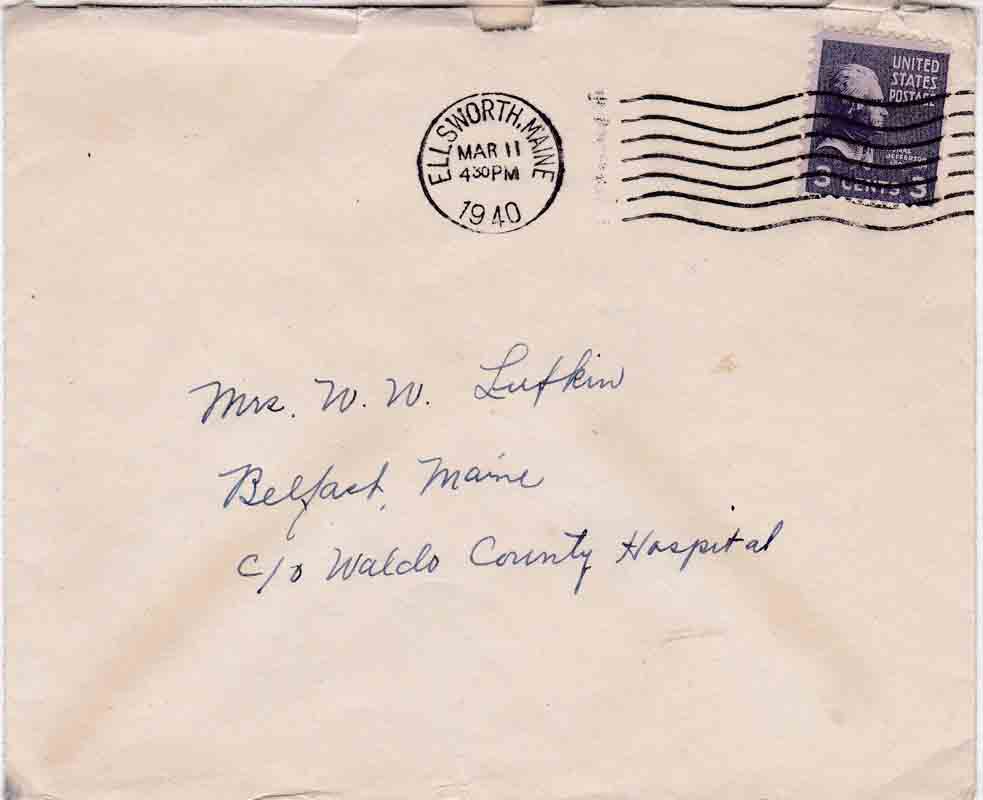 ELLSWORTH, MAINE
MAR 11
4 30 PM
1940
UNITED
STATES
POSTAGE
JEFFERSON
3 CENTS 3
Mrs. W. W. Lufkin
Belfast, Maine
c/o Waldo County Hospital